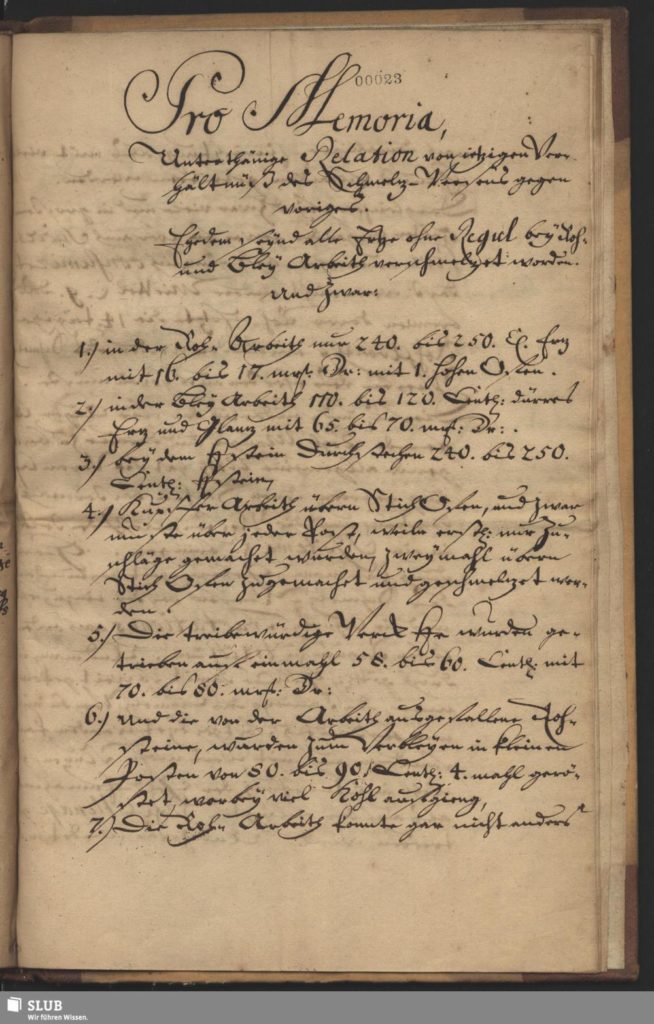 00023
Pro Memoria,
Unterthänige Relation von ietzigen Ver-
hältnüß des Schmelz-Weesens gegen
voriges.
Ehedem seynd alle Ertze ohne Regul bey Roh-
und Bley Arbeith verschmeltzet worden.
und zwar:
1.) in der Roh- Arbeith nur 240. bis 250. C. Ertz
mit 16. bis 17. mrk: Dr: mit 1. hohen Ofen.
2.) in der Bley Arbeith 110. bis 120. Centh: dürres
Ertz und Glantz mit 65. bis 70. mrk: Dr:.
3.) bey dem durchstechen 240. bis 250.
Centh:
4.) Kupffer Arbeith übern Stich Ofen, und zwar
muste über jeder Post, weiln erstl: nur Zu-
schläge gemachet wurden, zweymahl übern
Stich Ofen zugemachet und geschmeltzet wer-
den.
5.) Die treibewürdige Werck wurden ge-
trieben auf einmahl 58. bis 60. Centh: mit
70. bis 80. mrk: Dr:
6.) Und die von der Arbeith ausgefallene Roh-
steine, wurden zum Verbleyen in kleinen
Posten von 80. bis 90. Centh: 4. mahl gerö-
stet, worbey viel Kohl aufgieng,
7.) Die Roh- Arbeith konnte gar nicht anders
SLUB
Wir führen Wissen.